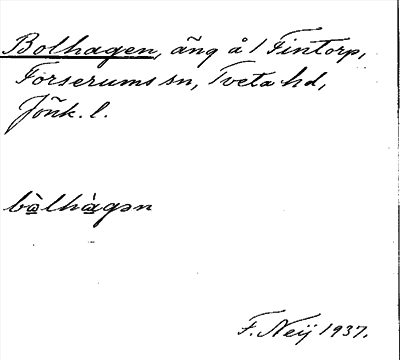 Bolhagen, äng å / Fintorp,
Forserums sn, Tveta hd,
Jönk. l.
bò̲lhà̲gən
F. Neij 1937.